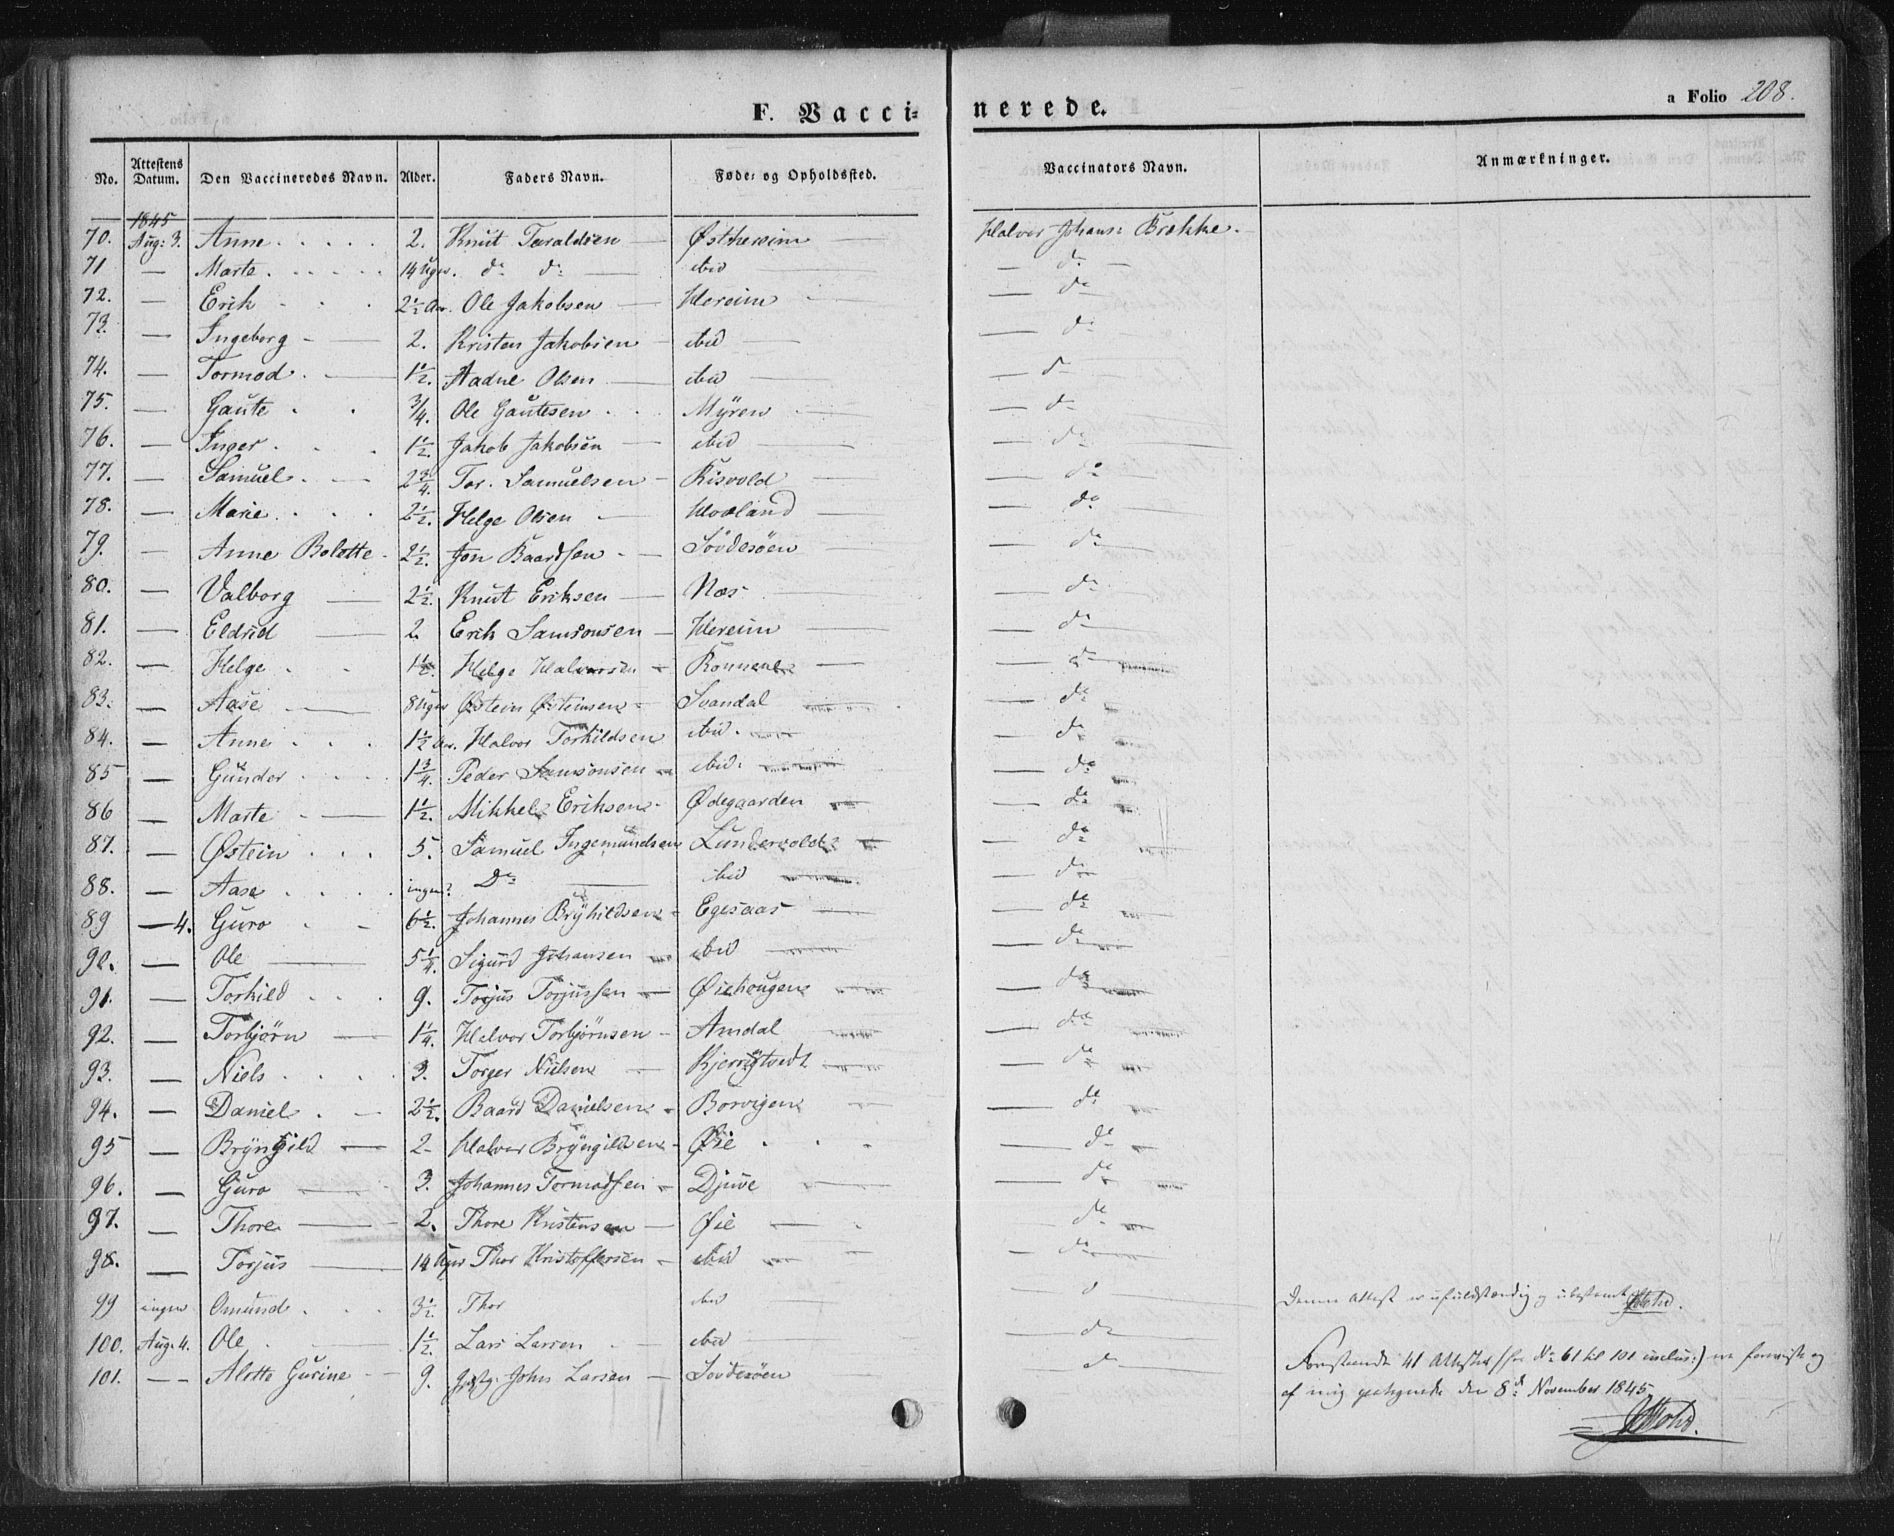 F. Vacci= nerede. a Folio 208.
No. Attestens Datum. Den Vaccineredes Navn. Alder. Faders Navn. Føde= og Opholdssted. Vaccinators Navn. Anmærkninger.
1845
70. Aug: 3. Anne 2. Knut Taraldsen Halvor Johans: Brække.
71 — Marte 14 Uger. do do ibid — do —
72. — Erik 2½ Aar. Ole Jakobsen Hereim — do
73. — Ingeborg 2. Kristen Jakobsen ibid — do
74. — Tormod 1½. Aadne Olsen ibid — do
75. — Gaute ¾. Ole Gautesen Myren — do
76. — Inger 1½ Jakob Jakobsen ibid — do
77. — Samuel 2¾. Tor. Samuelsen Risvold — do
78. — Marie 2½. Helge Olsen Hovland — do
79. — Anne Bolette 2½. Jon Baardsen Sövdesöen — do
80. — Valborg 2½. Knut Eriksen Næs — do
81. — Eldrid 2. Erik Samsonsen Hereim — do
82. — Helge 1½. Helge Halvorsen — do
83. — Aase 8 Uger Østein Østeinsen Svandal — do
84. — Anne 1½ Aar. Halvor Torkildsen ibid. — do
85 — Gunder 1¾. Peder Samsonsen ibid. — do
86 — Marte 1½. Mikkel Eriksen Ødegaarden — do
87. — Østein 5. Samuel Ingemundsen Lundevold — do
88. — Aase ingen? Do ibid — do
89 — 4. Guro 6½. Johannes Brynildsen Egesaas — do
90. — Ole 5¼. Sigurd Johansen ibid — do
91. — Torkild 9. Torjus Torjussen Øiehougen — do
92. — Torbjörn 1¼. Halvor Torbjörnsen Amdal — do
93. — Niels 3. Torger Nielsen — do
94. — Daniel 2½. Baard Danielsen Borvigen — do
95 — Bryngild 2 Halvor Bryngildsen Øie — do
96. — Guro 3. Johannes Tormodsen Djuve — do
97. — Thore 2. Thore Kristensen Øie — do
98. — Torjus 14 Uger Thor Kristoffersen ibid — do
99 ingen Omund 3½. Thor ibid — d Denne Attest er ufuldstændig og ubestemt
100. Aug. 4. Ole 1½. Lars Larsen ibid — do
101. — — Alette Gurine 9. John Larsen Sövdesöen — do
Forestaaende 41 Attester (fra No 61 til 101 inclus:) ere foreviste og
af mig paategnede den 8de November 1845